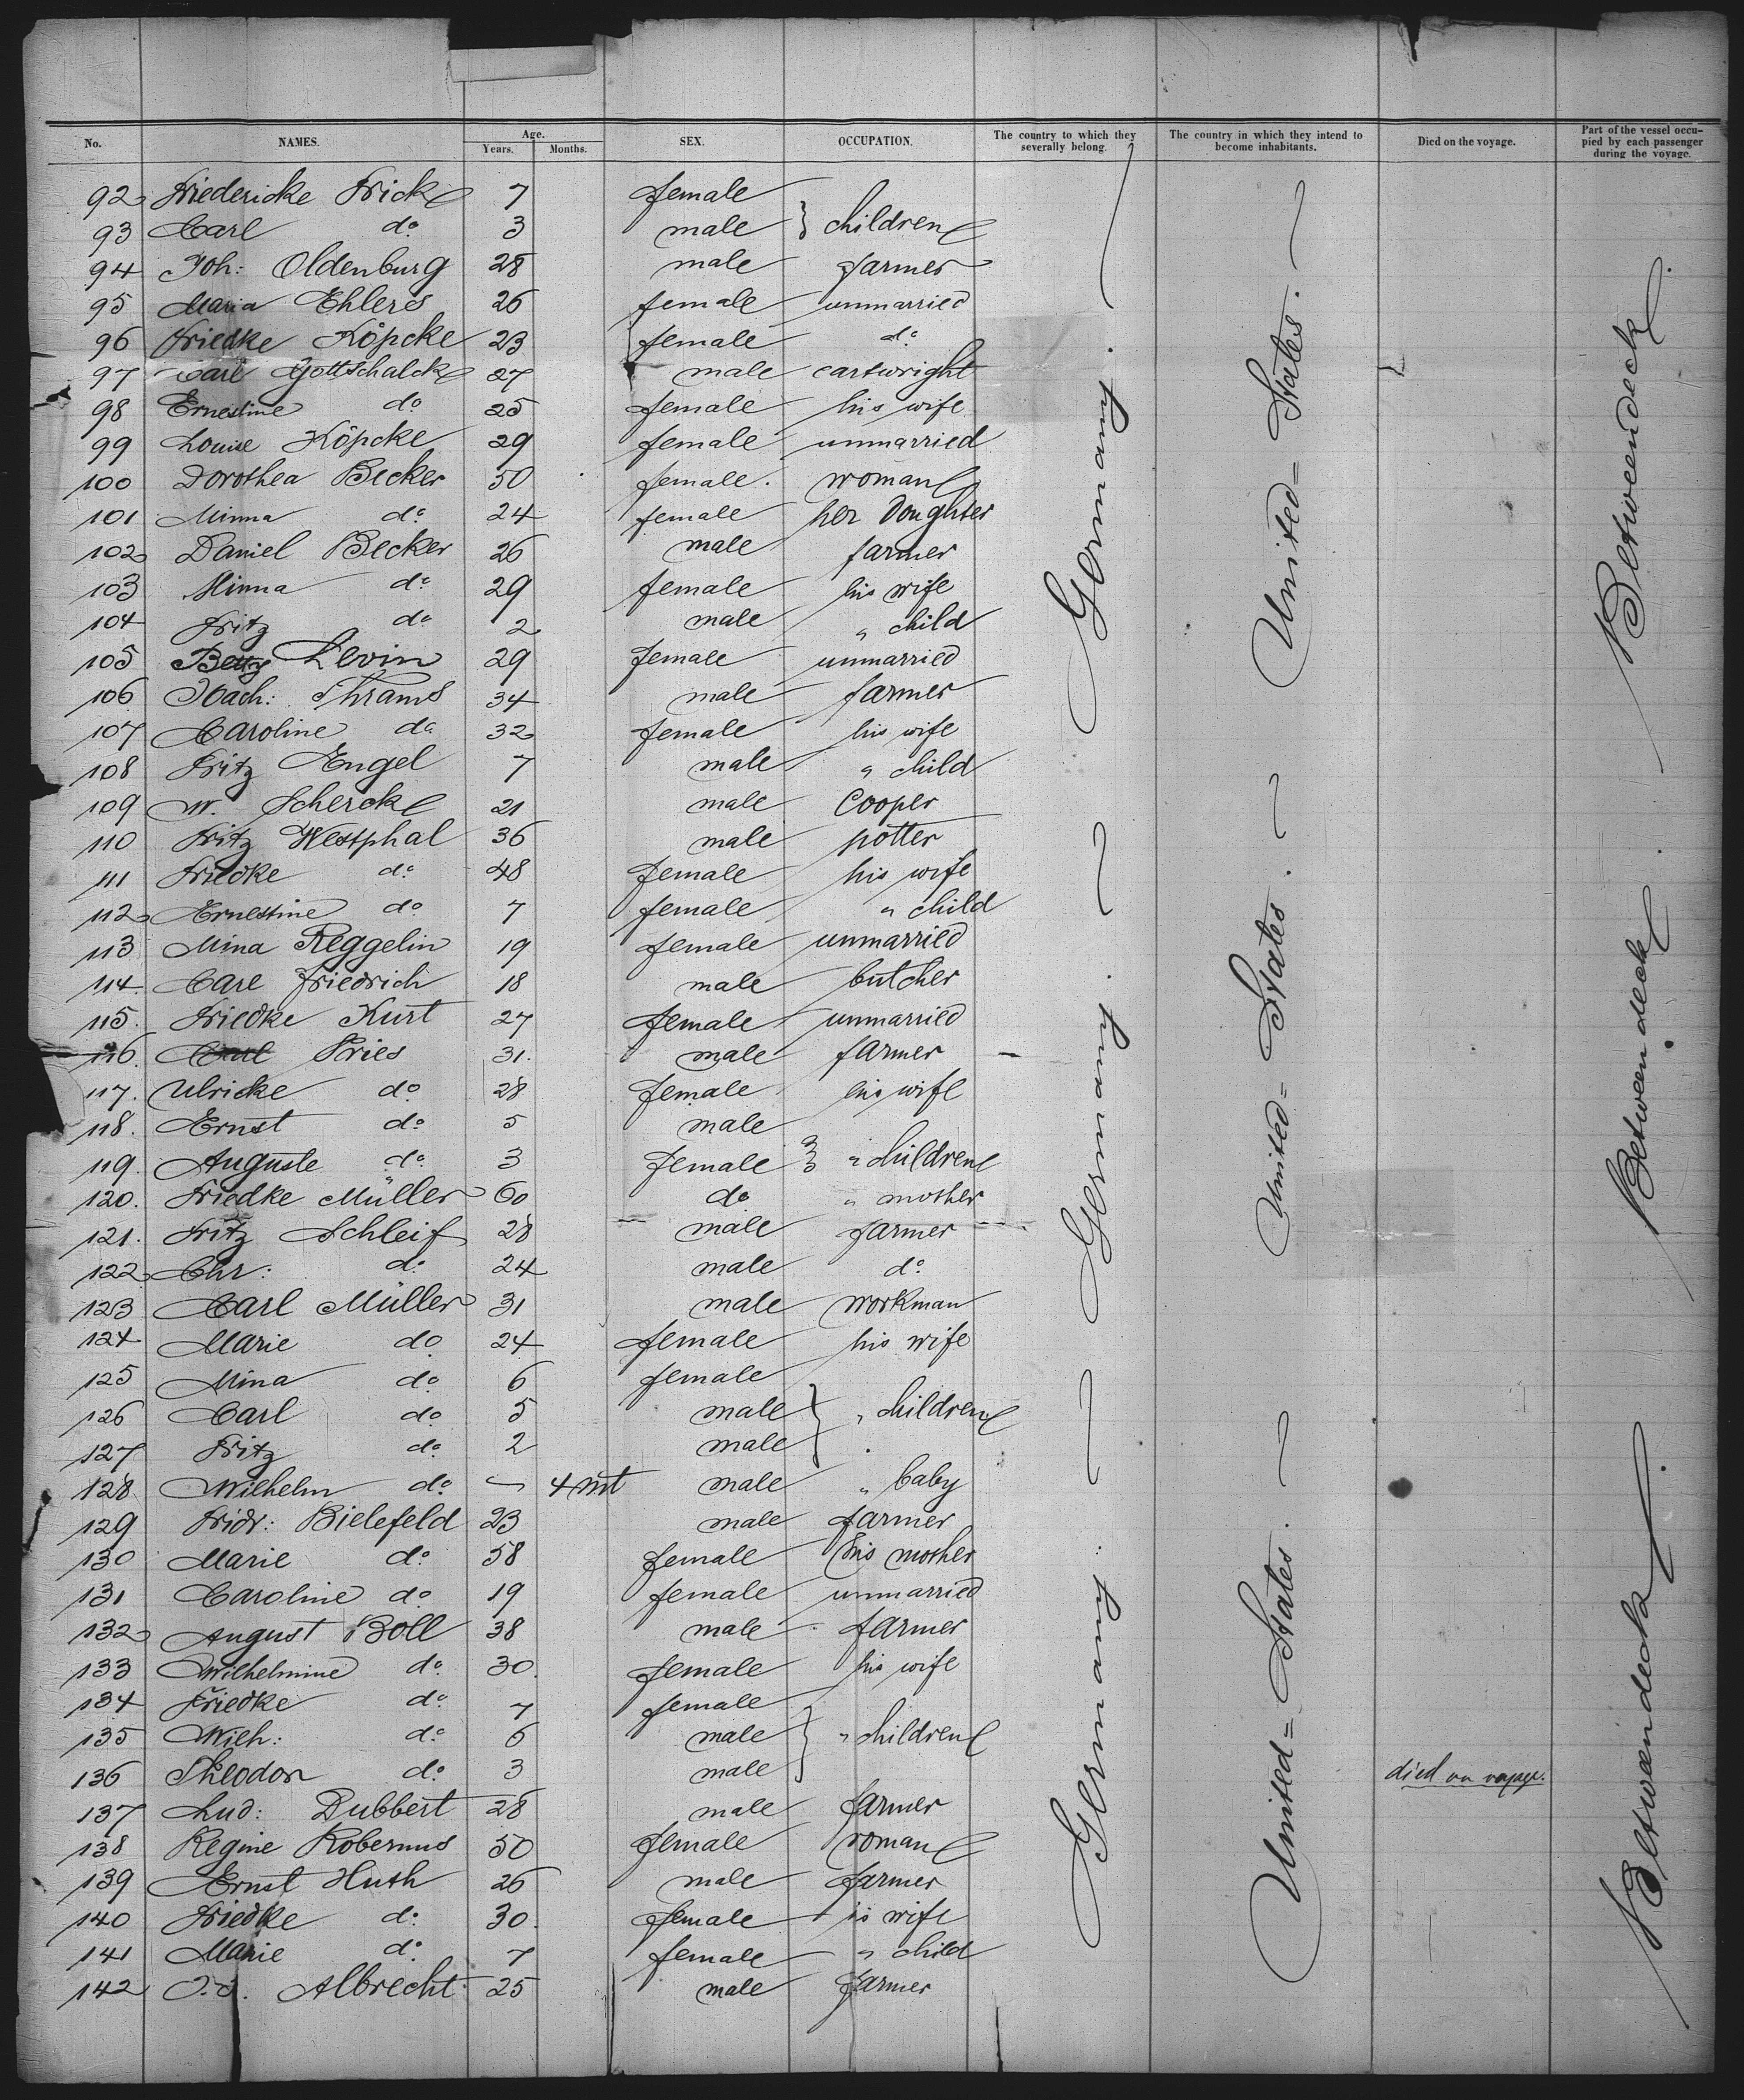 No. NAMES. Age. Years. Months. SEX. OCCUPATION. The country to which they severally belong. The country in which they intend to become inhabitants. Died on the voyage. Part of the vessel occupied by each passenger during the voyage.
92 Friedericke Fricke 7 female
93 Carl do 3 male } children
94 Joh: Oldenburg 28 male farmer
95 Maria Ehlers 26 female unmarried
96 Friedke Köpcke 23 female do
97 Carl Gottschalck 27 male cartwright
98 Ernestine do 25 female his wife
99 Louise Köpcke 29 female unmarried
100 Dorothea Becker 50 female woman
101 Minna do 24 female her Doughter
102 Daniel Becker 26 male farmer
103 Minna do 29 female his wife
104 Fritz do 2 male " child
105 Betty Levin 29 female unmarried
106 Joach: Thrams 34 male farmer
107 Caroline do 32 female his wife
108 Fritz Engel 7 male " child
109 W. Schercke 21 male cooper
110 Fritz Westphal 36 male potter
111 Friedke do 48 female his wife
112 Ernestine do 7 female " child
113 Mina Reggelin 19 female unmarried
114. Carl Friedrich 18 male butcher
115. Friedke Kurt 27 female unmarried
116. Carl Fries 31. male farmer
117. Ulricke do 28 female his wife
118. Ernst do 5 male
119. Auguste do 3 female } " children
120. Friedke Müller 60 do " mother
121. Fritz Schleif 28 male farmer
122 Chr: do 24 male do
123 Carl Müller 31 male workman
124 Marie do 24 female his wife
125 Mina do 6 female
126 Carl do 5 male } " children
127 Fritz do 2 male
128 Wilhelm do — 4 mt male " baby
129 Fridr: Bielefeld 23 male farmer
130 Marie do 58 female his mother
131 Caroline do 19 female unmarried
132 August Boll 38 male farmer
133 Wilhelmine do 30. female his wife
134 Friedke do 7 female
135 Wilh: do 6 male } " children
136 Theodor do 3 male died on voyage.
137 Lud: Dubbert 28 male farmer
138 Regine Robernus 50 female woman
139 Ernst Huth 26 male farmer
140 Friedke do 30. female is wife
141 Marie do 7 female " child
142 Albrecht 25 male farmer
Germany.
Germany.
Germany.
United=States.
United=States.
United=States.
Betweendeck
Between deck
Betweendeck